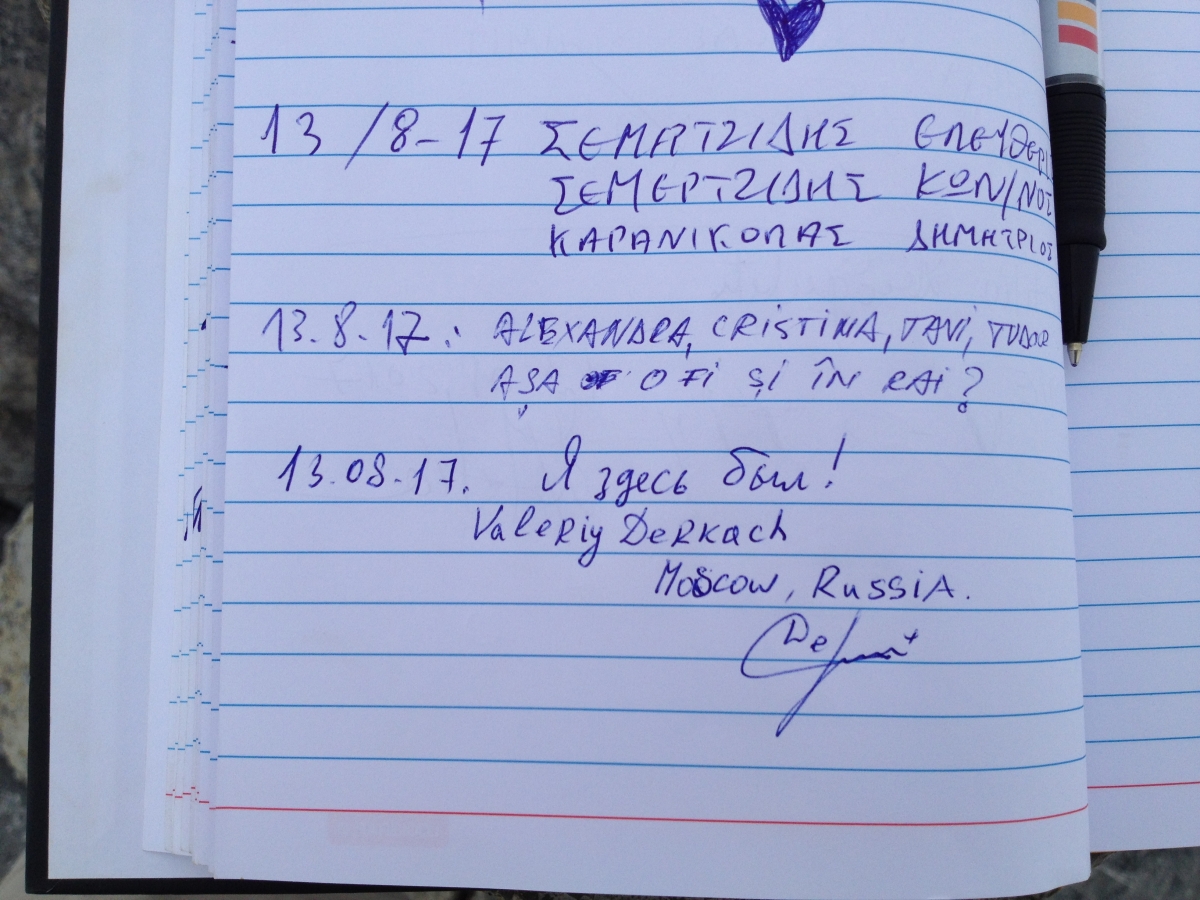 13/8-17 ΣΕΜΕΡΤΖΙΔΗΣ ΕΛΕΥΘΕΡΙ
ΣΕΜΕΡΤΖΙΔΗΣ ΚΩΝ/ΝΟΣ
ΚΑΡΑΝΙΚΟΛΑΣ ΔΗΜΗΤΡΙΟΣ
13.8.17: ALEXANDRA, CRISTINA, TAVI, TUDOR
AȘA O FI ȘI ÎN RAI?
13.08.17. Я здесь был!
Valeriy Derkach
Moscow, Russia.